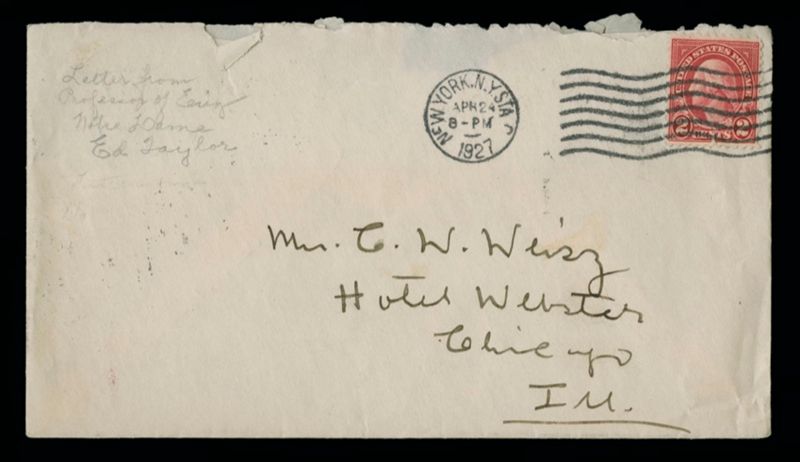 Letter from
Professor of
Notre Dame
Ed Taylor
NEW YORK, N.Y. STA
APR 24
8-PM
1927
UNITED STATES POSTAGE
2 CENTS 2
Mr. C. W. Weisz
Hotel Webster
Chicago
Ill.